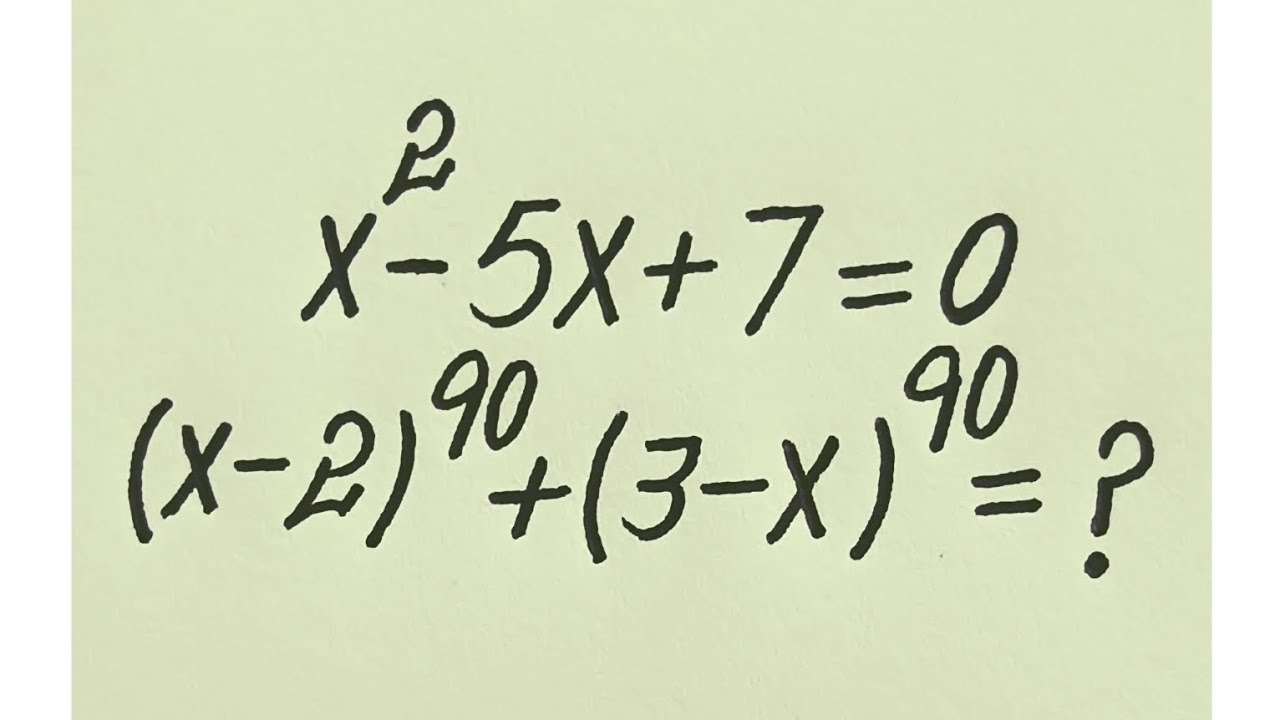 x²-5x+7=0
(x-2)⁹⁰+(3-x)⁹⁰=?